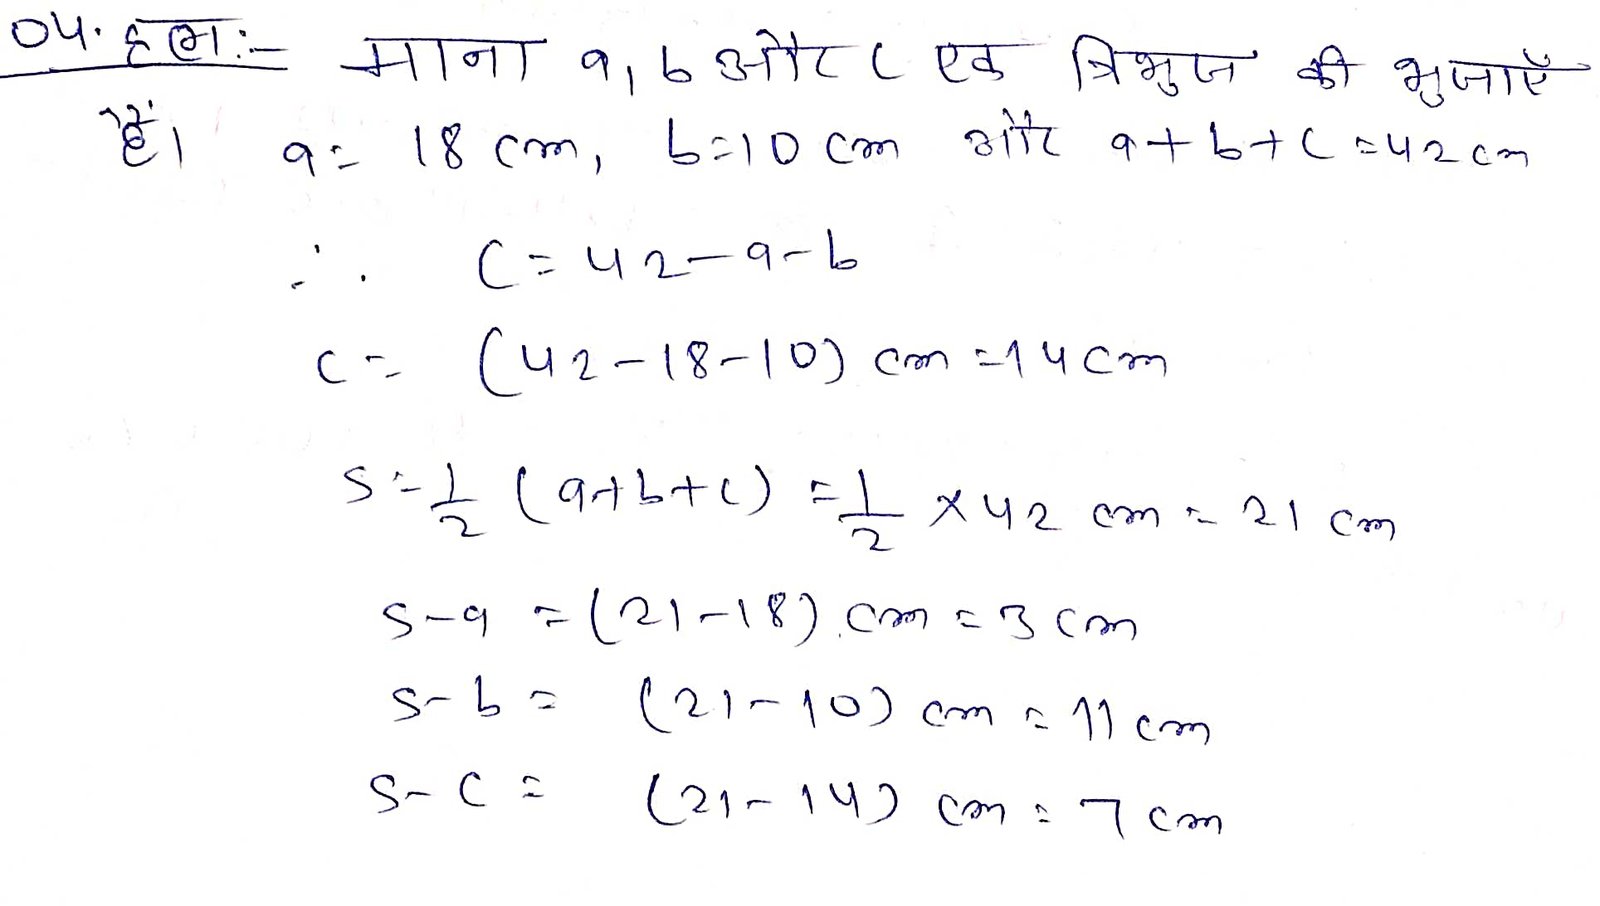 04. हल:- माना a, b और c एक त्रिभुज की भुजाएँ
हैं। a = 18 cm, b = 10 cm और a + b + c = 42 cm
∴ c = 42 - a - b
c = (42 - 18 - 10) cm = 14 cm
s = 1/2 (a + b + c) = 1/2 × 42 cm = 21 cm
s - a = (21 - 18) cm = 3 cm
s - b = (21 - 10) cm = 11 cm
s - c = (21 - 14) cm = 7 cm